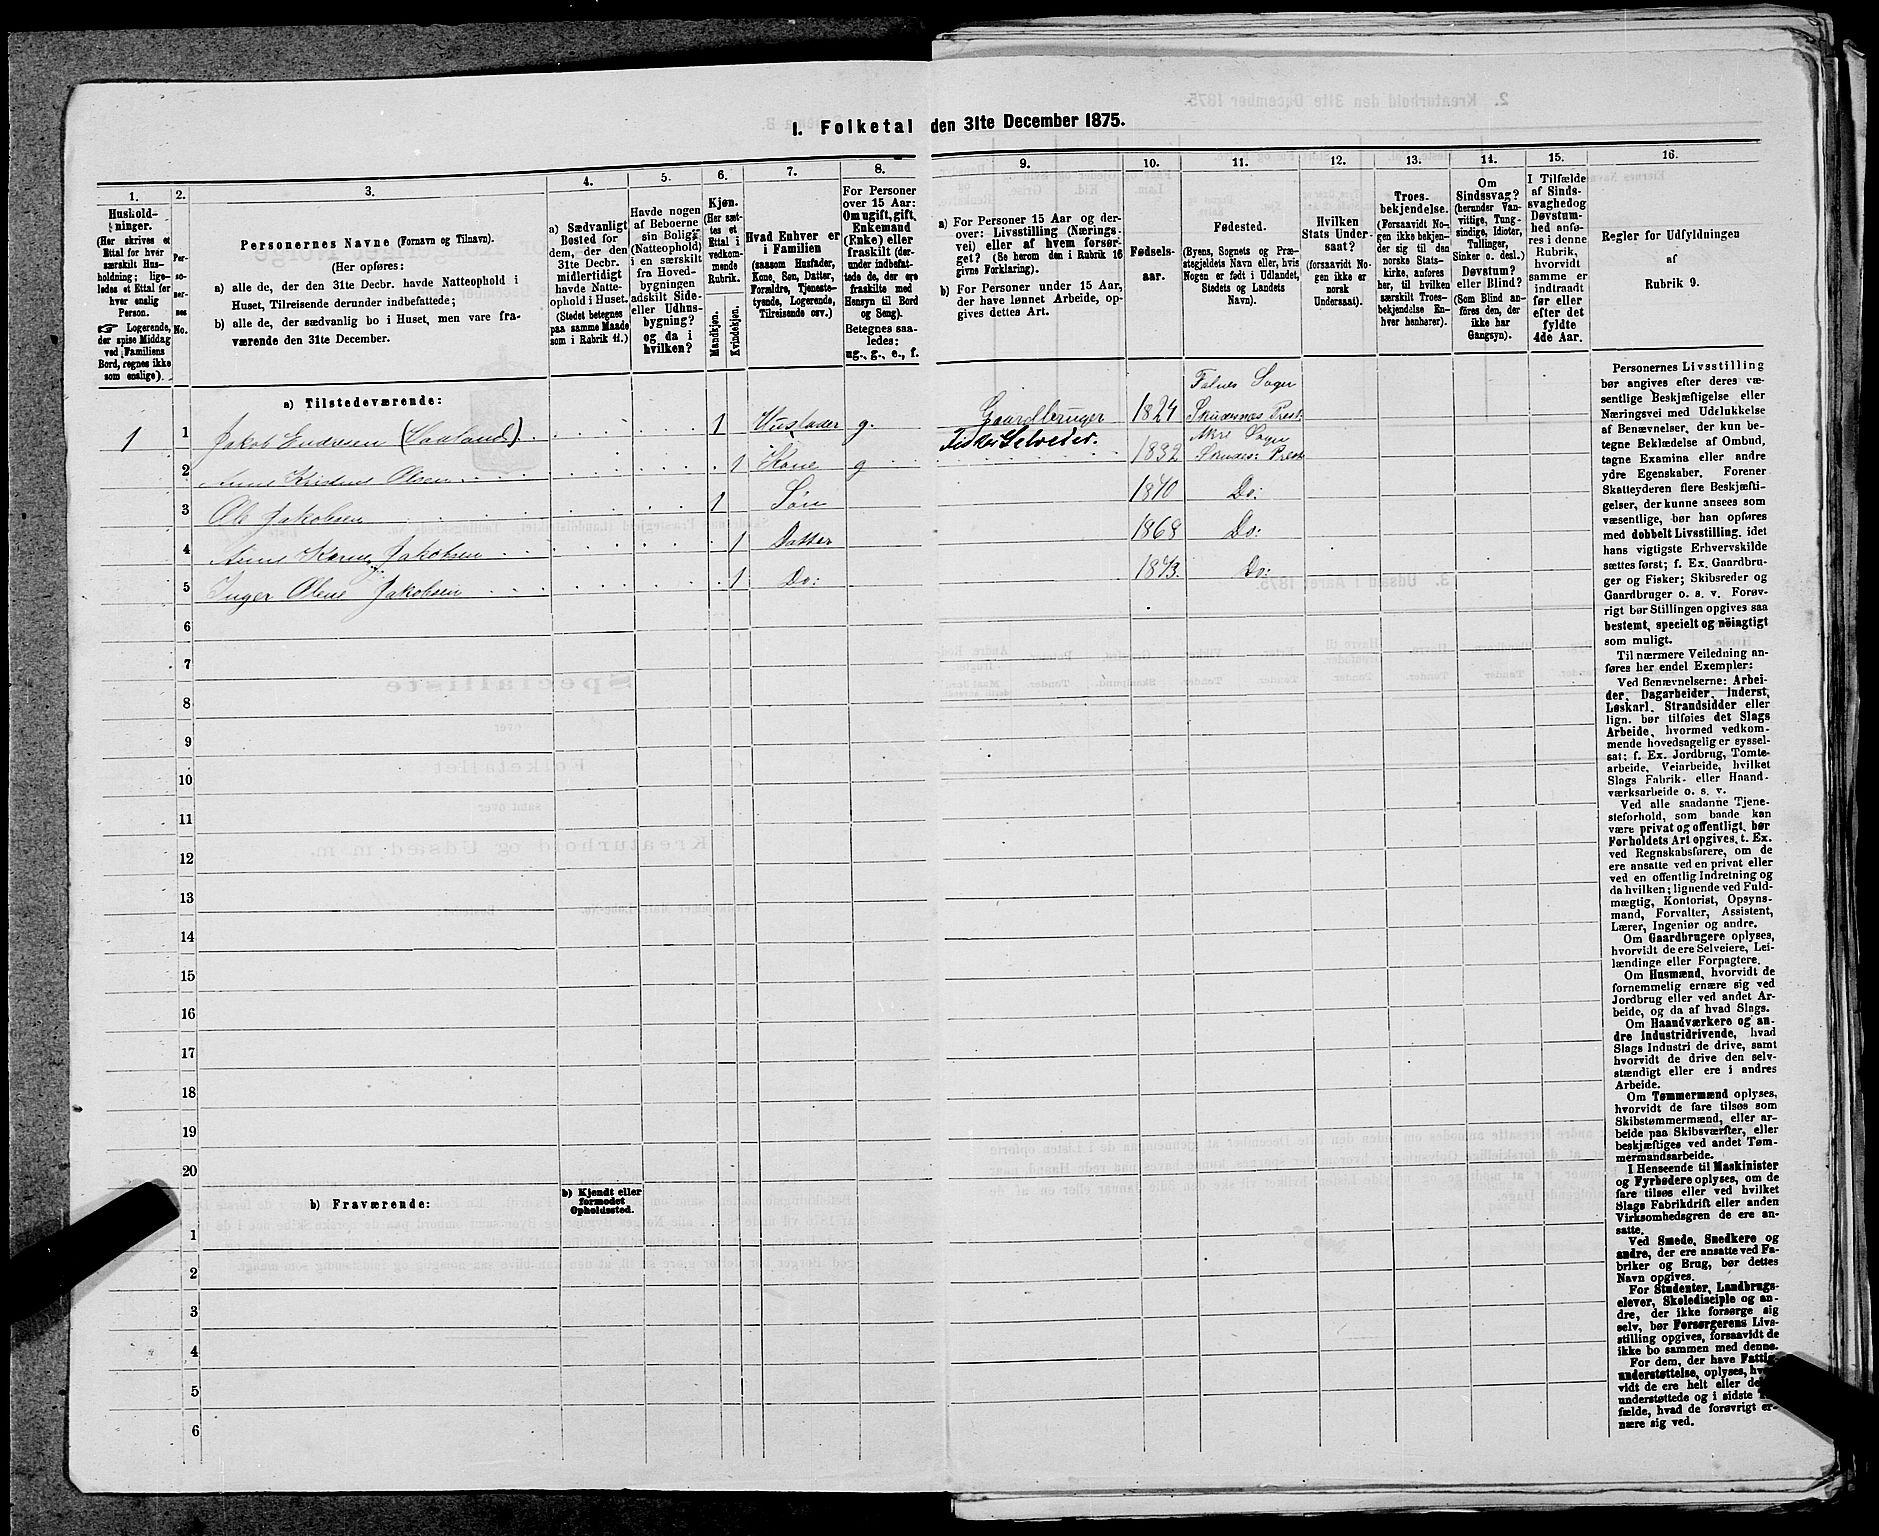 1. Folketal den 31te December 1875.
1.
Hushold-
ninger.
(Her skrives et
Ettal for hver
særskilt Hus-
holdning; lige-
ledes et Ettal for
hver enslig
Person.
☞ Logerende,
der spise Middag
ved Familiens
Bord, regnes ikke
som enslige).
2.
Per-
so-
ner-
nes
No.
3.
Personernes Navne (Fornavn og Tilnavn).
(Her opføres:
a) alle de, der den 31te Decbr. havde Natteophold i
Huset, Tilreisende derunder indbefattede;
b) alle de, der sædvanlig bo i Huset, men vare fra-
værende den 31te December.
4.
a) Sædvanligt
Bosted for
dem, der den
31te Decbr.
midlertidigt
havde Natte-
ophold i Huset.
(Stedet betegnes
paa samme Maade
som i Rubrik 11.)
5.
Havde nogen
af Beboerne
sin Bolig
(Natteophold)
i en særskilt
fra Hoved-
bygningen
adskilt Side-
eller Udhus-
bygning?
og da i
hvilken?
6.
Kjøn.
(Her sæt-
tes et
Ettal i
vedkom-
mende
Rubrik.
Mandkjøn.
Kvindekjøn.
7.
Hvad Enhver er
i Familien
(saasom Husfader,
Kone, Søn, Datter,
Forældre, Tjeneste-
tyende, Logerende,
Tilreisende osv.)
8.
For Personer
over 15 Aar:
Om ugift, gift,
Enkemand
(Enke) eller
fraskilt (der-
under indbefat-
tede de, der ere
fraskilte med
Hensyn til Bord
og Seng).
Betegnes saa-
ledes:
ug., g., e., f.
9.
a) For Personer 15 Aar og der-
over: Livsstilling (Nærings-
vei) eller af hvem forsør-
get? (Se herom den i Rubrik 16
givne Forklaring).
b) For Personer under 15 Aar,
der have lønnet Arbeide, op-
gives dettes Art.
10.
Fødsels-
aar.
11.
Fødested.
(Byens, Sognets og Præ-
stegjeldets Navn eller, hvis
Nogen er født i Udlandet,
Stedets og Landets
Navn).
12.
Hvilken
Stats Under-
saat?
(forsaavidt No-
gen ikke er
norsk
Undersaat).
13.
Troes-
bekjendelse.
(Forsaavidt No-
gen ikke bekjen-
der sig til den
norske Stats-
kirke, anføres
her, til hvilken
særskilt Troes-
bekjendelse En-
hver henhører).
14.
Om
Sindssvag?
(herunder Van-
vittige, Tung-
sindige, Idioter,
Tullinger,
Sinker o. desl.)
Døvstum?
eller Blind?
(Som Blind an-
føres den, der
ikke har
Gangsyn).
15.
I Tilfælde
af Sinds-
svaghed og
Døvstum-
hed anfø-
res i denne
Rubrik,
hvorvidt
samme er
indtraadt
før eller
efter det
fyldte
4de Aar.
16.
Regler for Udfyldningen
af
Rubrik 9.
a) Tilstedeværende:
1 1 Jakob Endresen (Vaaland) 1 Husfader g. Gaardbruger Fisker Selveier. 1824 Falnes Sogn Skudesnes Prest:
2 Anne Kristine Olsen 1 Kone g 1832 Akre Sogn Skudes: Prest
3 Ole Jakobsen 1 Søn 1870 Do:
4 Anne Karine Jakobsen 1 Datter 1868 Do:
5 Inger Olene Jakobsen 1 Do: 1873. Do:
6
7
8
9
10
11
12
13
14
15
16
17
18
19
20
b) Fraværende:
b) Kjendt eller
formodet
Opholdssted.
1
2
3
4
5
6
Personernes Livsstilling
bør angives efter deres væ-
sentlige Beskjæftigelse eller
Næringsvei med Udelukkelse
af Benævnelser, der kun be-
tegne Beklædelse af Ombud,
tagne Examina eller andre
ydre Egenskaber. Forener
Skatteyderen flere Beskjæfti-
gelser, der kunne ansees som
væsentlige, bør han opføres
med dobbelt Livsstilling, idet
hans vigtigste Erhvervskilde
sættes først; f. Ex. Gaardbru-
ger og Fisker; Skibsreder og
Gaardbruger o. s. v. Forøv-
rigt bør Stillingen opgives saa
bestemt, specielt og nöiagtigt
som muligt.
Til nærmere Veiledning an-
føres her endel Exempler:
Ved Benævnelserne: Arbei-
der, Dagarbeider, Inderst,
Løskarl, Strandsidder eller
lign. bør tilføies det Slags
Arbeide, hvormed vedkom-
mende hovedsagelig er syssel-
sat; f. Ex. Jordbrug, Tomte-
arbeide, Veiarbeide, hvilket
Slags Fabrik- eller Haand-
værksarbeide o. s. v.
Ved alle saadanne Tjene-
steforhold, som baade kan
være privat og offentligt, bør
Forholdets Art opgives, t. Ex.
ved Regnskabsførere, om de
ere ansatte ved en privat eller
ved en offentlig Indretning og
da hvilken; lignende ved Fuld-
mægtig, Kontorist, Opsyns-
mand, Forvalter, Assistent,
Lærer, Ingeniør og andre.
Om Gaardbrugere oplyses,
hvorvidt de ere Selveiere, Lei-
lændinge eller Forpagtere.
Om Husmænd, hvorvidt de
fornemmelig ernære sig ved
Jordbrug eller ved andet Ar-
beide, og da af hvad Slags.
Om Haandværkere og an-
dre Industridrivende, hvad
Slags Industri de drive, samt
hvorvidt de drive den selv-
stændigt eller ere i andres
Arbeide.
Om Tømmermænd oplyses,
hvorvidt de fare tilsøs som
Skibstømmermænd, eller ar-
beide paa Skibsværfter, eller
beskjæftiges ved andet Tøm-
mermandsarbeide.
I Henseende til Maskinister
og Fyrbødere oplyses, om de
fare tilsøs eller ved hvilket
Slags Fabrikdrift eller anden
Virksomhedsgren de ere an-
satte.
Ved Smede, Snedkere og
andre, der ere ansatte ved Fa-
briker og Brug, bør dettes
Navn opgives.
For Studenter, Landbrugs-
elever, Skoledisciple og an-
dre, der ikke forsørge sig
selv, bør Forsørgerens Livs-
stilling opgives, forsaavidt de
ikke bo sammen med denne.
For dem, der have Fattig-
understøttelse, oplyses, hvor-
vidt de ere helt eller
understøttede og i sidste
fælde, hvad de forøvrigt er-
nære sig ved.